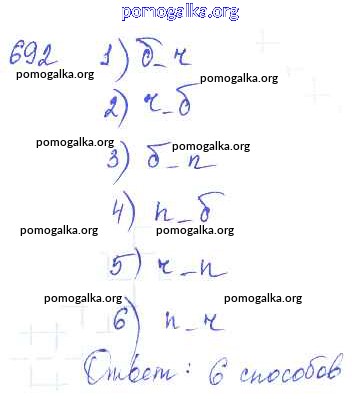 pomogalka.org
692 1) б - ч
pomogalka.org
pomogalka.org
2) ч - б
pomogalka.org
3) б - п
pomogalka.org
4) п - б
pomogalka.org
pomogalka.org
5) ч - п
pomogalka.org
pomogalka.org
6) п - ч
Ответ: 6 способов